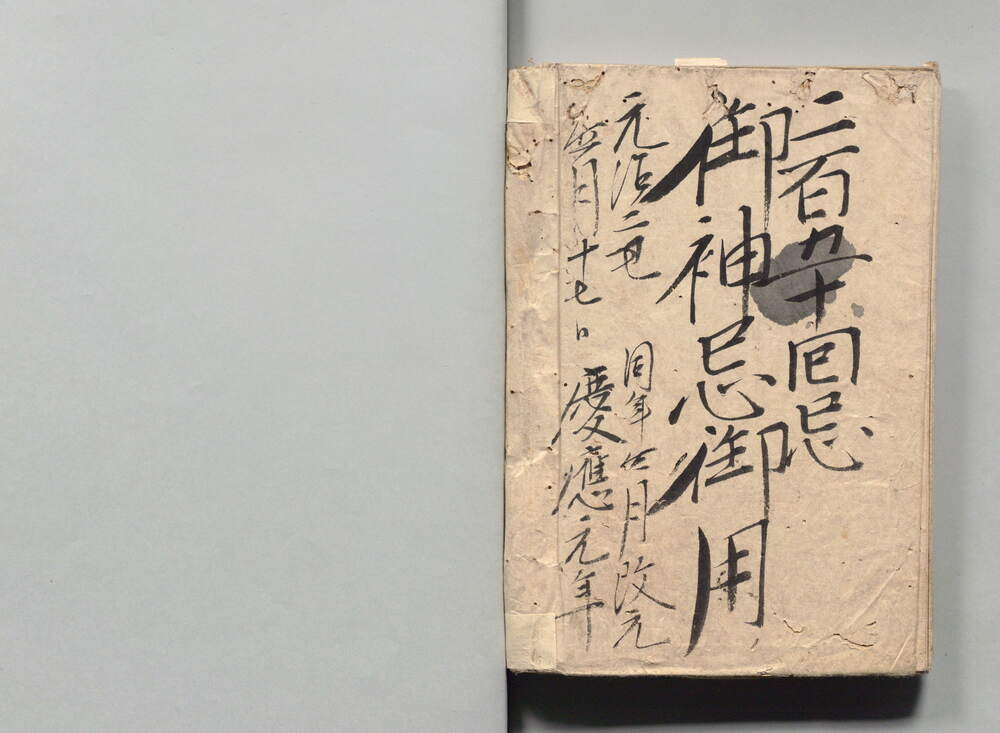 二百五十回忌
御神忌御用
元治二丑
四月十七日
同年四月改元
慶應元年